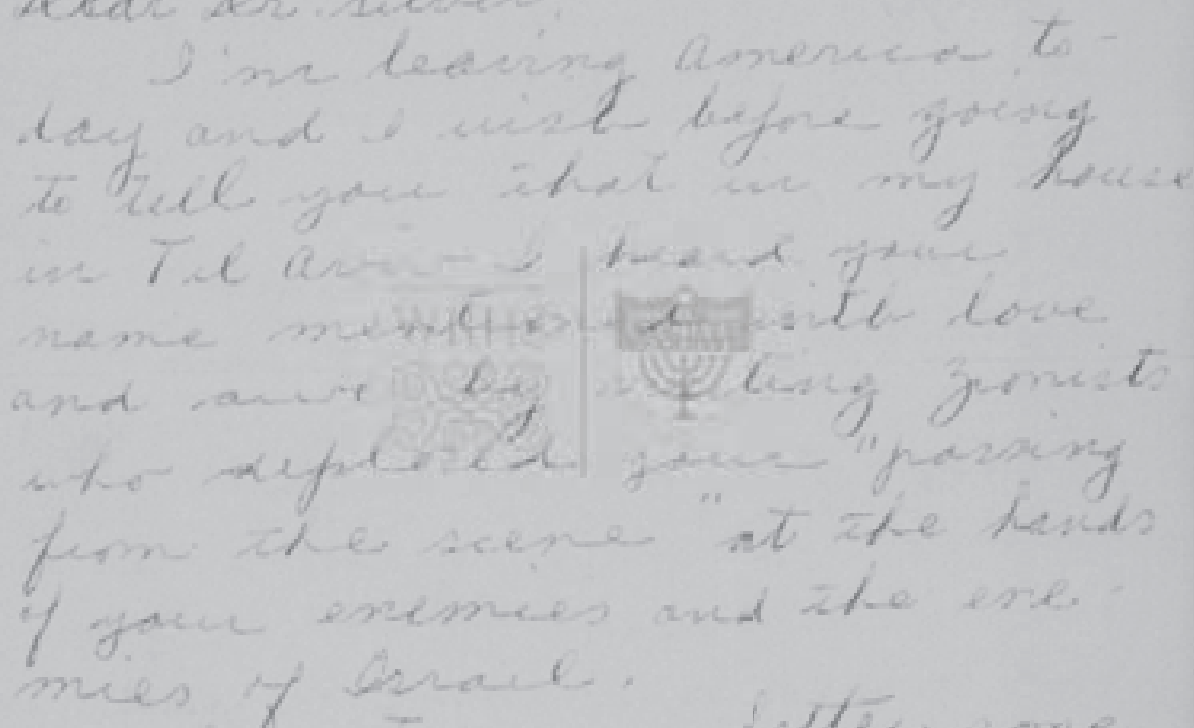 Dear Dr. Silver,
I'm leaving America to-
day and I wish before going
to tell you that in my house
in Tel Aviv - I heard your
name mentioned with love
and awe by visiting Zionists
who deplored your "passing
from the scene" at the hands
of your enemies and the ene-
mies of Israel.